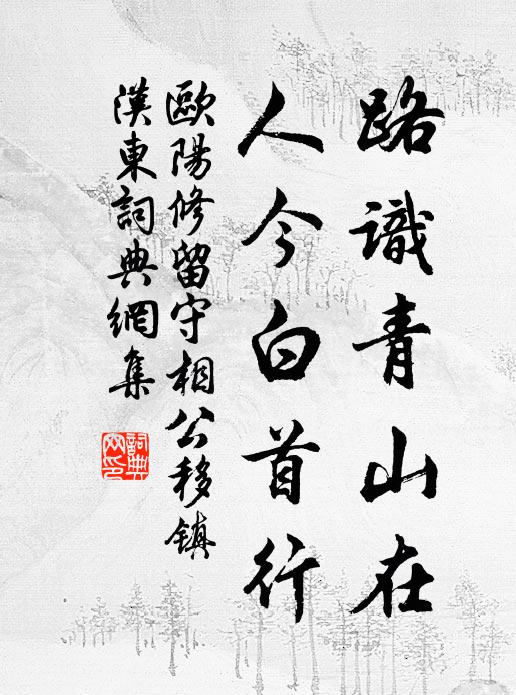 路識青山在
人今白首行
歐陽修留守相公移鎮
漢東詞典網集
詞典网印